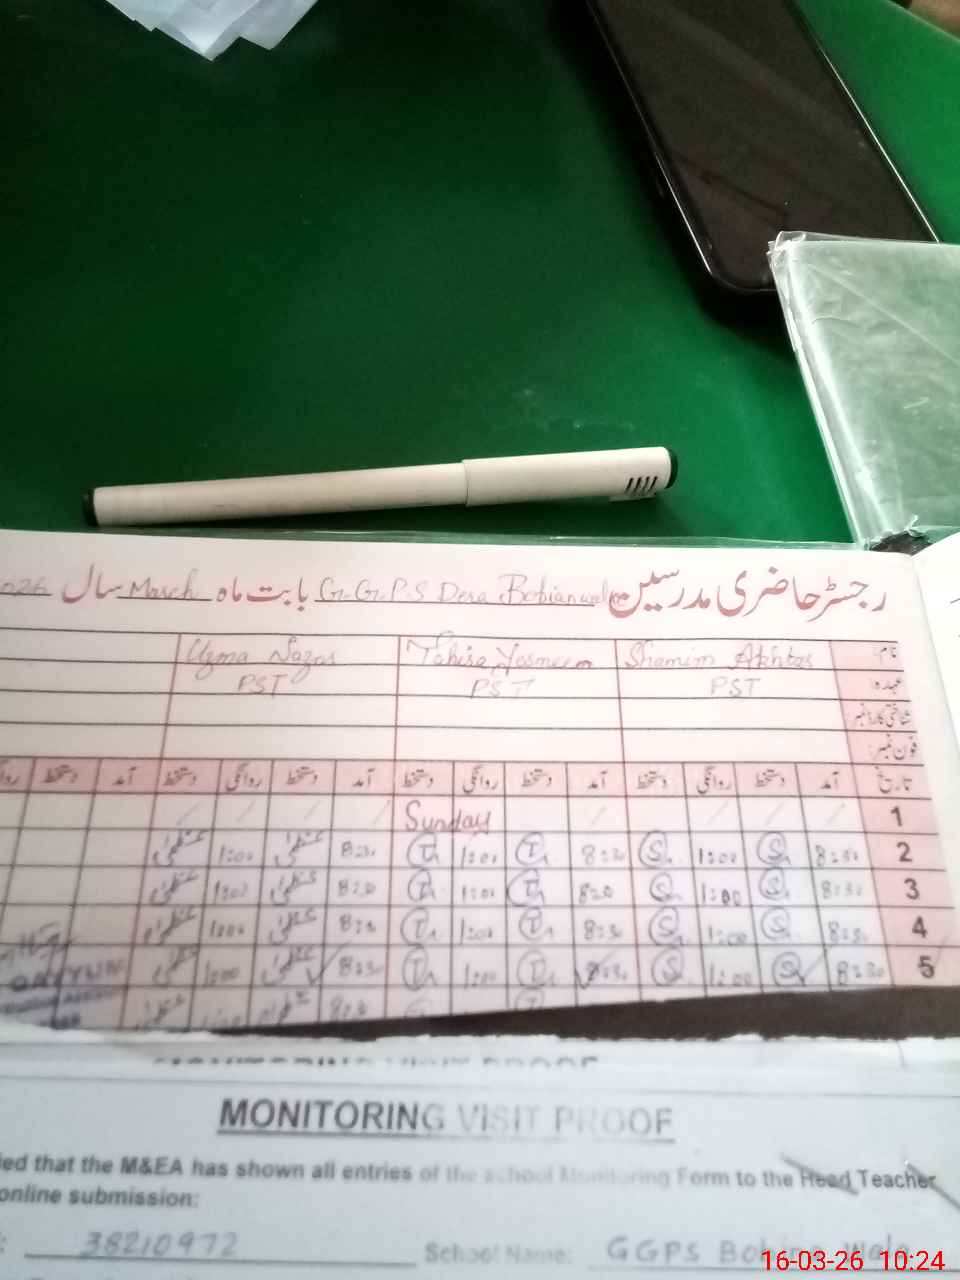 رجسٹر حاضری مدرسین G.G.P.S Dera Bobianwala بابت ماہ March سال 2026
نام: Shamim Akhtar Tahira Yasmeen Uzma Nazar
عہدہ: PST PST PST
شناختی کارڈ نمبر
فون نمبر:
تاریخ آمد دستخط روانگی دستخط آمد دستخط روانگی دستخط آمد دستخط روانگی دستخط آمد دستخط
1 Sunday
2 8:30 S 1:00 S 8:30 T 1:00 T 8:30 عظمیٰ 1:00 عظمیٰ
3 8:30 S 1:00 S 8:30 T 1:00 T 8:30 عظمیٰ 1:00 عظمیٰ
4 8:30 S 1:00 S 8:30 T 1:00 T 8:30 عظمیٰ 1:00 عظمیٰ
5 8:30 S 1:00 S 8:30 T 1:00 T 8:30 عظمیٰ 1:00 عظمیٰ
MONITORING VISIT PROOF
MONITORING VISIT PROOF
ied that the M&EA has shown all entries of the school Monitoring Form to the Head Teacher
online submission:
38210972 School Name: GGPS Bobian Wala
16-03-26 10:24